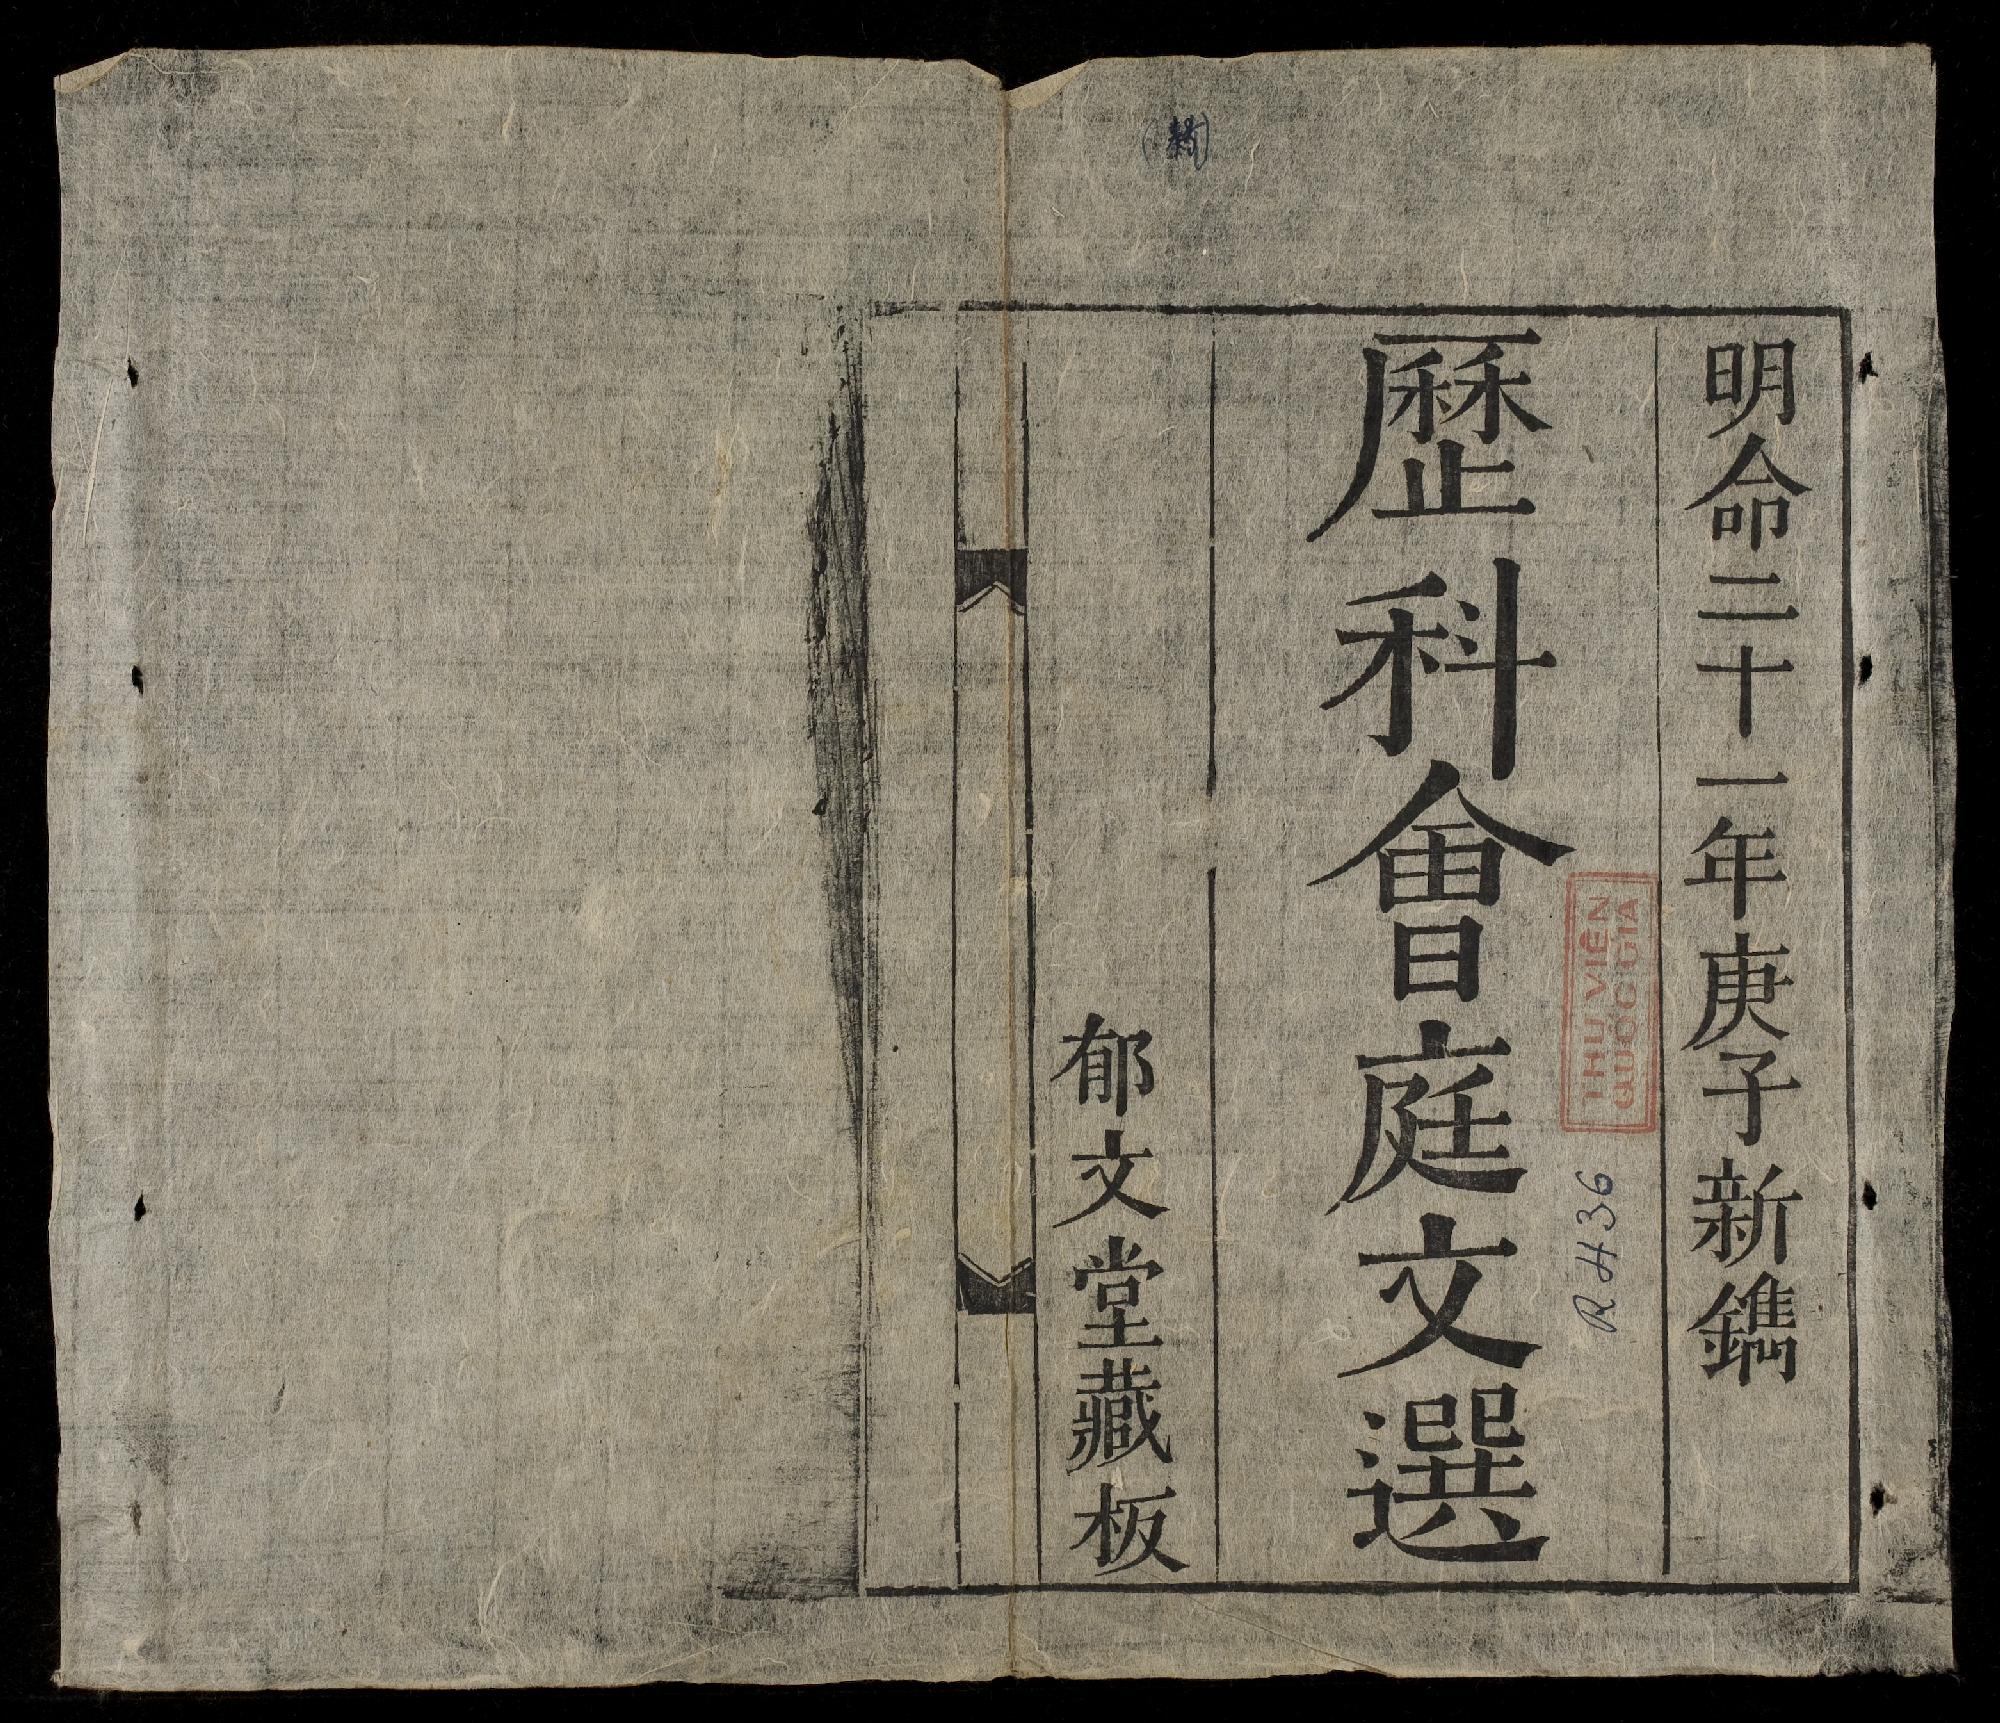 明命二十一年庚子新鐫
歷科會庭文選
郁文堂藏板
THƯ VIỆN
QUỐC GIA
R 436